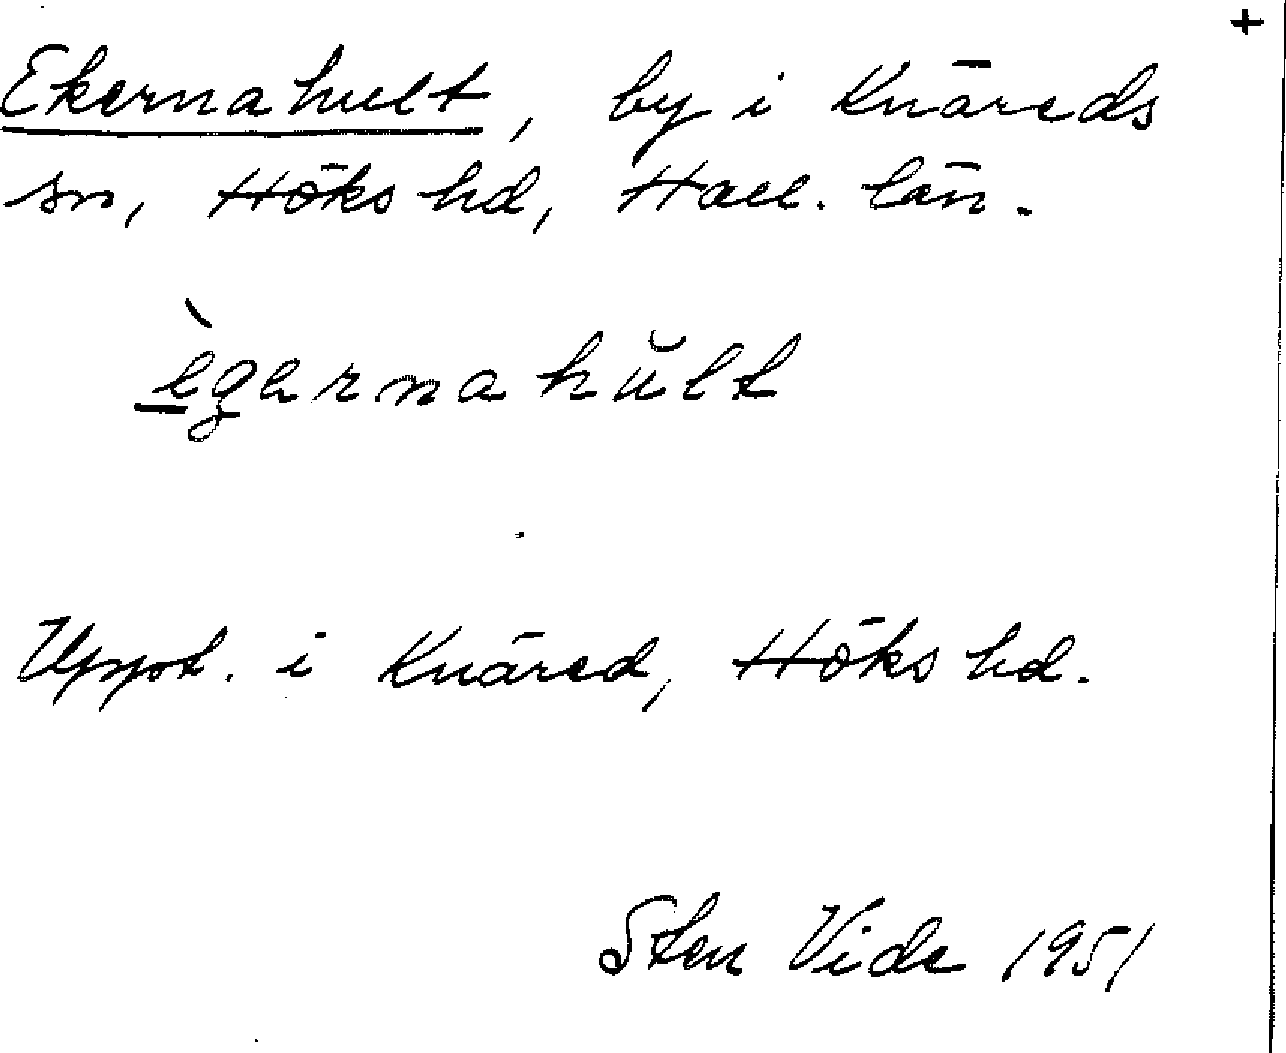 +
Ekernahult, by i Knäreds
sn, Höks hd, Hall. län.
ègernahŭlt
Uppt. i Knäred, Höks hd.
Sten Vide 1951